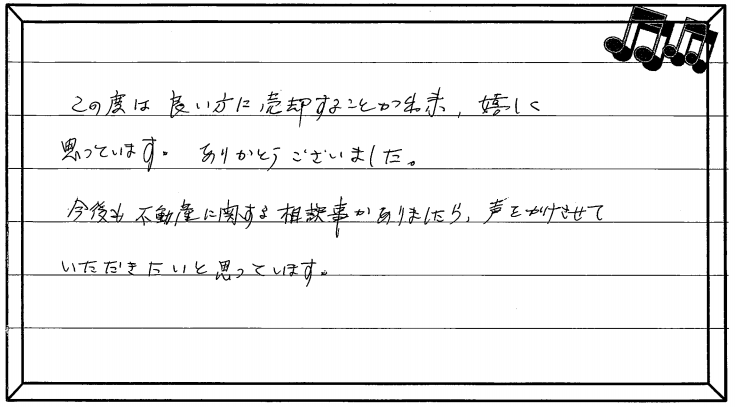 この度は良い方に売却することが出来、嬉しく
思っています。ありがとうございました。
今後も不動産に関する相談事がありましたら、声をかけさせて
いただきたいと思っています。